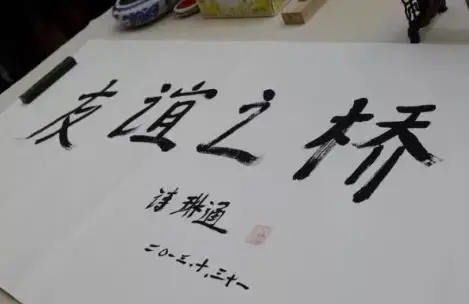 友谊之桥
诗琳通
二〇一三.十.三十一